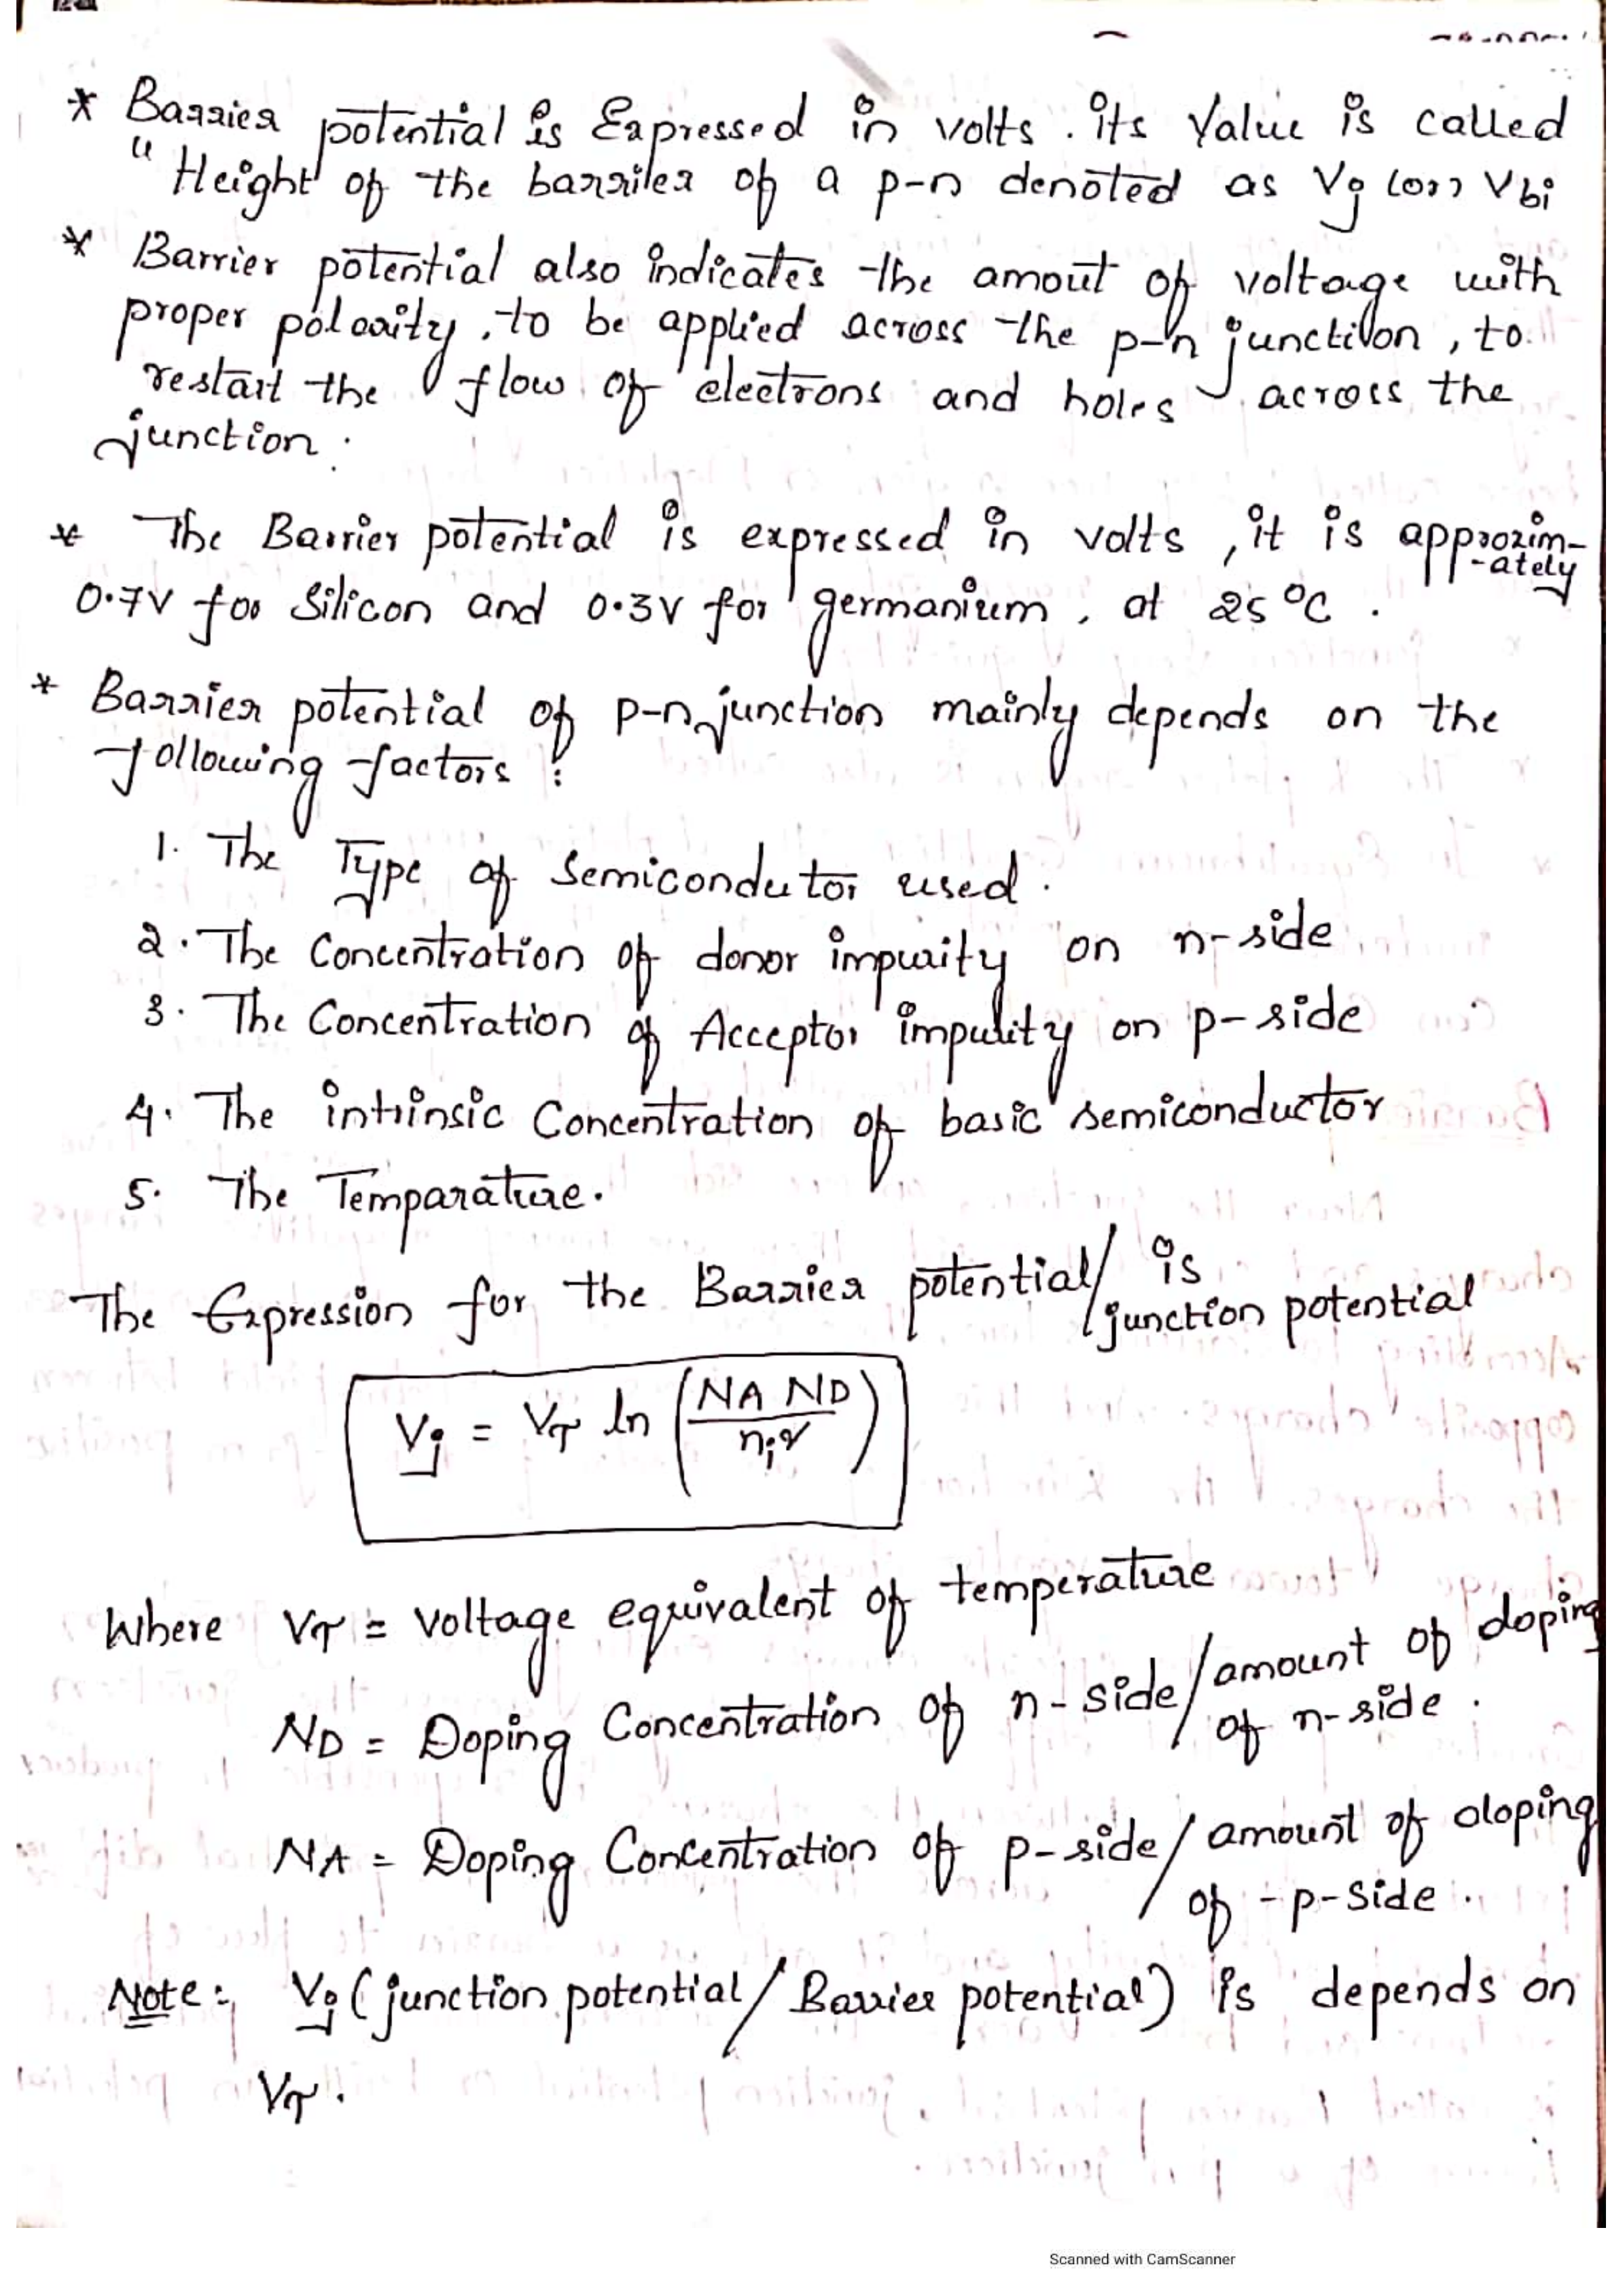 * Barrier potential is Expressed in volts . its Value is called
" Height of the barrier of a p-n denoted as Vj (or) Vbi
* Barrier potential also indicates the amout of voltage with
proper polarity , to be applied across the p-n junction , to
restart the flow of electrons and holes across the
junction .
* The Barrier potential is expressed in volts , it is approxim-
-ately
0.7V for Silicon and 0.3V for germanium , at 25°C .
* Barrier potential of p-n junction mainly depends on the
following factors :
1. The Type of Semicondutor used .
2. The Concentration of donor impurity on n-side
3. The Concentration of Acceptor impurity on p-side
4. The intrinsic Concentration of basic semiconductor
5. The Temparature .
The Expression for the Barrier potential/junction potential is
Vj = VT ln (NA ND / ni²)
Where VT = Voltage equivalent of temperature
ND = Doping Concentration of n-side/amount of doping
of n-side .
NA = Doping Concentration of p-side/amount of doping
of -p-side .
Note:- Vj (junction potential/Barrier potential) is depends on
VT .
Scanned with CamScanner